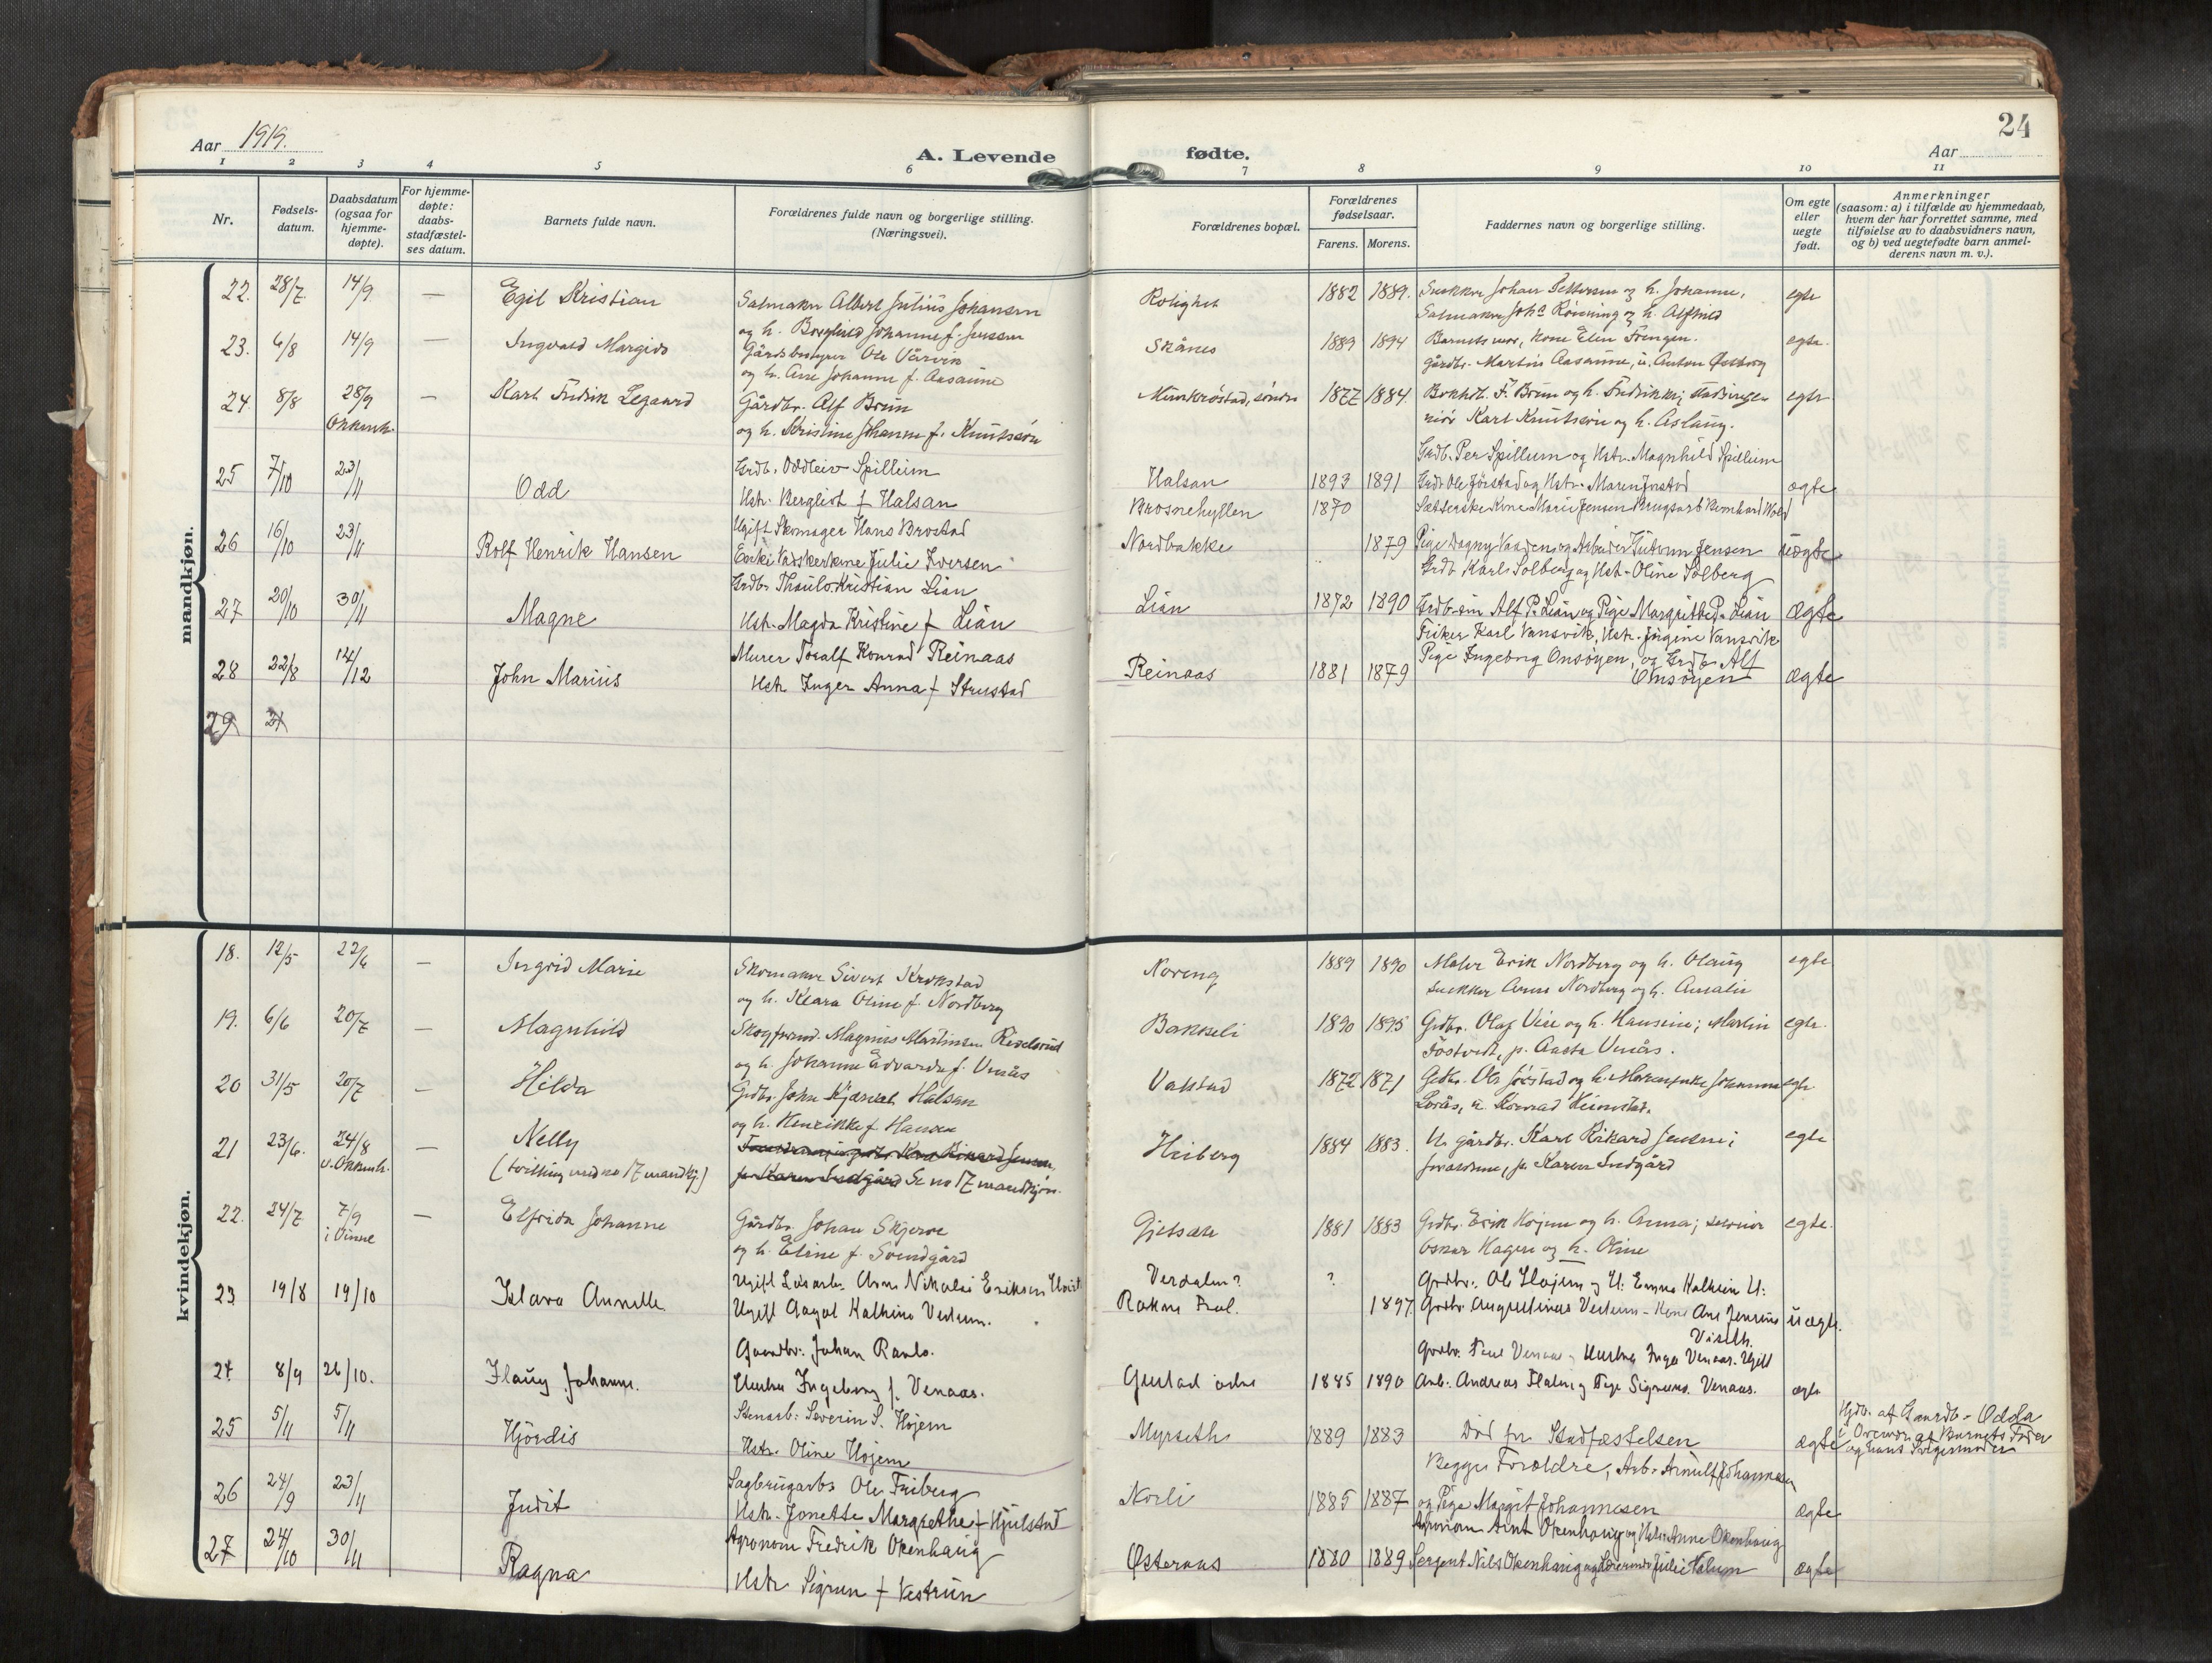 24
Aar 1919.
A. Levende fødte.
Aar
1 2 3 4 5 6 7 8 9 10 11
Nr.
Fødsels-
datum.
Daabsdatum
(ogsaa for
hjemme-
døpte).
For hjemme-
døpte:
daabs-
stadfæstel-
ses datum.
Barnets fulde navn.
Forældrenes fulde navn og borgerlige stilling.
(Næringsvei).
Forældrenes bopæl.
Forældrenes
fødselsaar.
Farens. Morens.
Faddernes navn og borgerlige stilling.
Om egte
eller
uegte
født.
Anmerkninger
(saasom: a) i tilfælde av hjemmedaab,
hvem der har forrettet samme, med
tilføielse av to daabsvidners navn,
og b) ved uegtefødte barn anmel-
derens navn m. v.).
mandkjøn.
22. 28/7. 14/9 — Egil Kristian
Salmaker Albert Julius Johansen
og h. Borghild Johanne f. Jensen
Rolighet 1882 1889.
Snekker Johan Pettersen og h. Johanne,
Salmaker Johs Röinning og h. Alfhild
egte
23. 6/8 14/9 — Ingvald Margido
Gårdsbestyrer Ole Vårvik
og h. Ane Johanne f. Aasaune
Skånes 1889 1894
Barnets mor, kone Elen Trengen.
gårdbr. Martin Aasaune, u. Anton Östborg
egte.
24. 8/8 28/9 — Karl Fredrik Legaard
Okkenh.
Gårdbr. Alf Brun
og h. Kristine Johanne f. Knutssön
Munkröstad, söndre 1877 1884.
Bokhol. F. Brun og h. Fredrikke; stadsinge-
niör Karl Knutssön og h. Aslaug.
egte
25 7/10 23/11 Odd
Grdb. Oddleiv Spillum
Hstr. Bergliot f Halsan
Halsan 1893 1891
Grdb. Per Spillum og Hstr. Magnhild Spillum
Grdb Ole Jörstad og Hstr. Maren Jörstad
ægte
26 16/10 23/11 Rolf Henrik Hansen
Ugift Skomager Hans Brostad
Enke Vadskerkone Julie Iversen
Brosnehyllen 1870
Nordbakke 1879
Sætterske Kone Marie Jensen Brugsarb Bernhard Wold
Pige Dagny Vaaden og Arbeider Guttorm Jensen
uægte
27 20/10 30/11 Magne
Grdbr Thaulo Kristian Lian
Hstr. Magda Kristine f Lian
Lian 1872 1890
Grdb Karl Solberg og Hst. Oline Solberg
Grdb. sön Alf P. Lian og Pige Margrethe P. Lian
ægte
28 22/8 14/12 John Marius
Murer Toralf Konrad Reinaas
Hstr Inger Anna f Strustad
Reinaas 1881 1879
Fisker Karl Vansvik, Hstr. Jörgine Vansvik
Pige Ingeborg Onsöyen, og Grdb Alf
Onsöyen
ægte
29
kvindekjøn.
18. 12/5 22/6 — Ingrid Marie
Skomaker Sivert Krokstad
og h. Klara Oline f. Nordberg
Noreng 1889 1890
Maler Erik Nordberg og h. Olaug
snekker Arne Nordberg og h. Amalie
egte
19. 6/6 20/7 — Magnhild
Magnus Martinsen
og h. Johanne Edvarda f. Venås
Bakkeli 1890 1895
Grdbr. Olaf Veie og h. Hansine; Martin
Fostvedt, p. Aasta Venås.
egte.
20 31/5 20/7 — Hilda
Grdbr. John Kjærvek Halsan
og h. Henrikke f Hansen
Vakstad 1872 1871
Grdbr. Ole Jörstad og h. Maren; enke Johanna
Lorås, u. Konrad Heimstad.
egte.
21 23/6. 24/8 — Nelly
v. Okkenh. (tvilling med no 17 mandkj.)
Se no 17 mandkjön.
Heiberg 1884 1883.
U. gårdbr. Karl Rikard Jensen;
forældrene, p. Karen Indgård
egte
22. 24/7 7/9 — Elfrida Johanne
i Vinne
Gårdbr. Johan Skjerve
og h. Eline f. Svendgård
Gjetsaae 1881 1883
Grdbr. Erik Hojem og h. Anna;
Oskar Hagen og h. Oline
egte.
23 19/8 19/10 Klara Annelle
Ugift Arne Nikolai Eriksen
Ugift Aagot Kathine Vestrum.
Verdalen? ?
1897
Grdbr. Ole Hojem og H: Emma Kathrin H:
Grdbr. Augustinus Vestrum – Kone Ane Jensine
uægte.
24. 8/9 26/10. Flaug Johanne.
Gaardbr. Johan Ranlo.
Hustru Ingeborg f. Venaas.
Gustad östre 1885 1890
Grdbr. Paul Venaas og Hustru Inga Venaas. Ugift
Arb. Andreas og Pige Venaas.
ægte
25 5/11 5/11 Hjördis
Stenarb: Severin S. Hojem
Hstr. Oline Hojem
Myrseth 1889 1883
Död för Stadfæstelsen
ægte
Hjdb. af Gaardb. Odda
i Overvær af Barnets Fader
og hans Svigermoder
26 24/9 23/11 Judit
Sagbrugarb Ole Friberg
Hstr. Jonette Margrethe f Hjulstad
Norli 1885 1887
Begge Forældre, Arb. Arnulf Johannesen
og Pige Margit Johannesen
ægte
27 24/10 30/11 Ragna
Agronom Fredrik Okenhaug
Hstr Sigrun f Vestrum
Österaas 1880 1889
Agronom Arnt Okenhaug og Hstr. Anne Okenhaug
Sergent Nils Okenhaug og Lærerinde Julie Halum
ægte